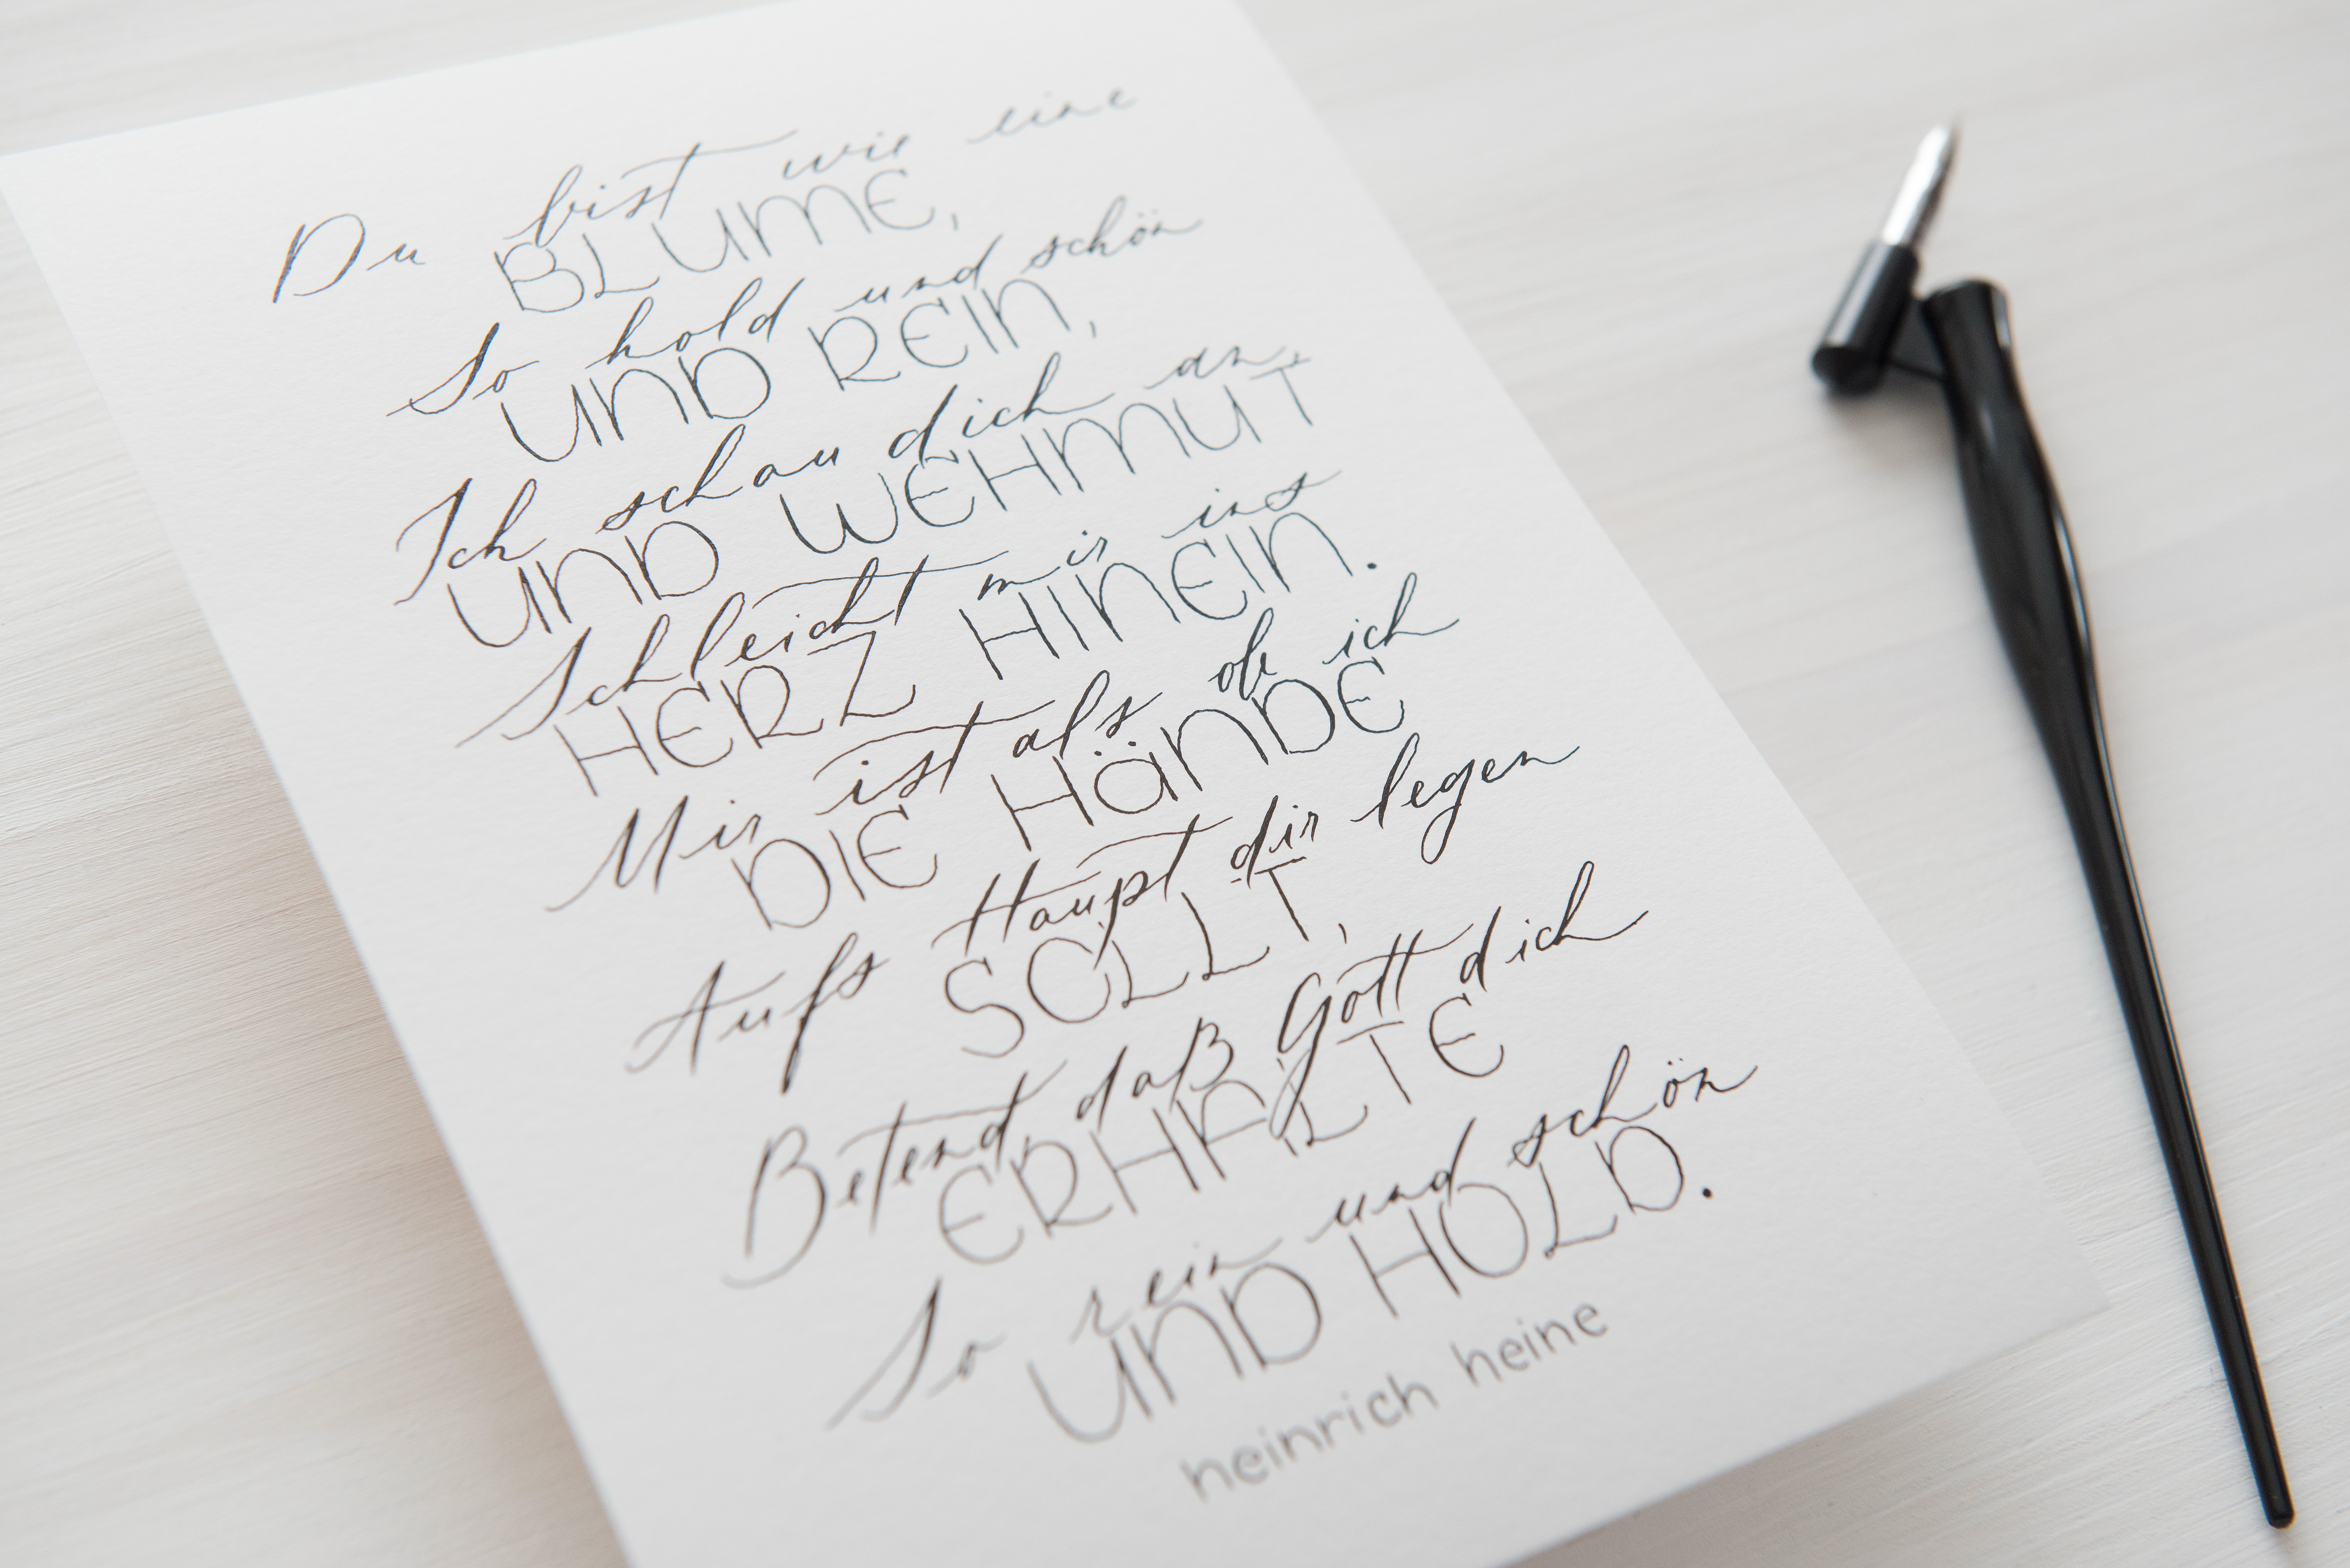 Du bist wie eine
BLUME,
So hold und schön
UND REIN,
Ich schau dich an,
UND WEHMUT
Schleicht mir ins
HERZ HINEIN.
Mir ist als ob ich
DIE HÄNDE
Aufs Haupt dir legen
SOLLT,
Betend daß Gott dich
ERHALTE
So rein und schön
UND HOLD.
heinrich heine